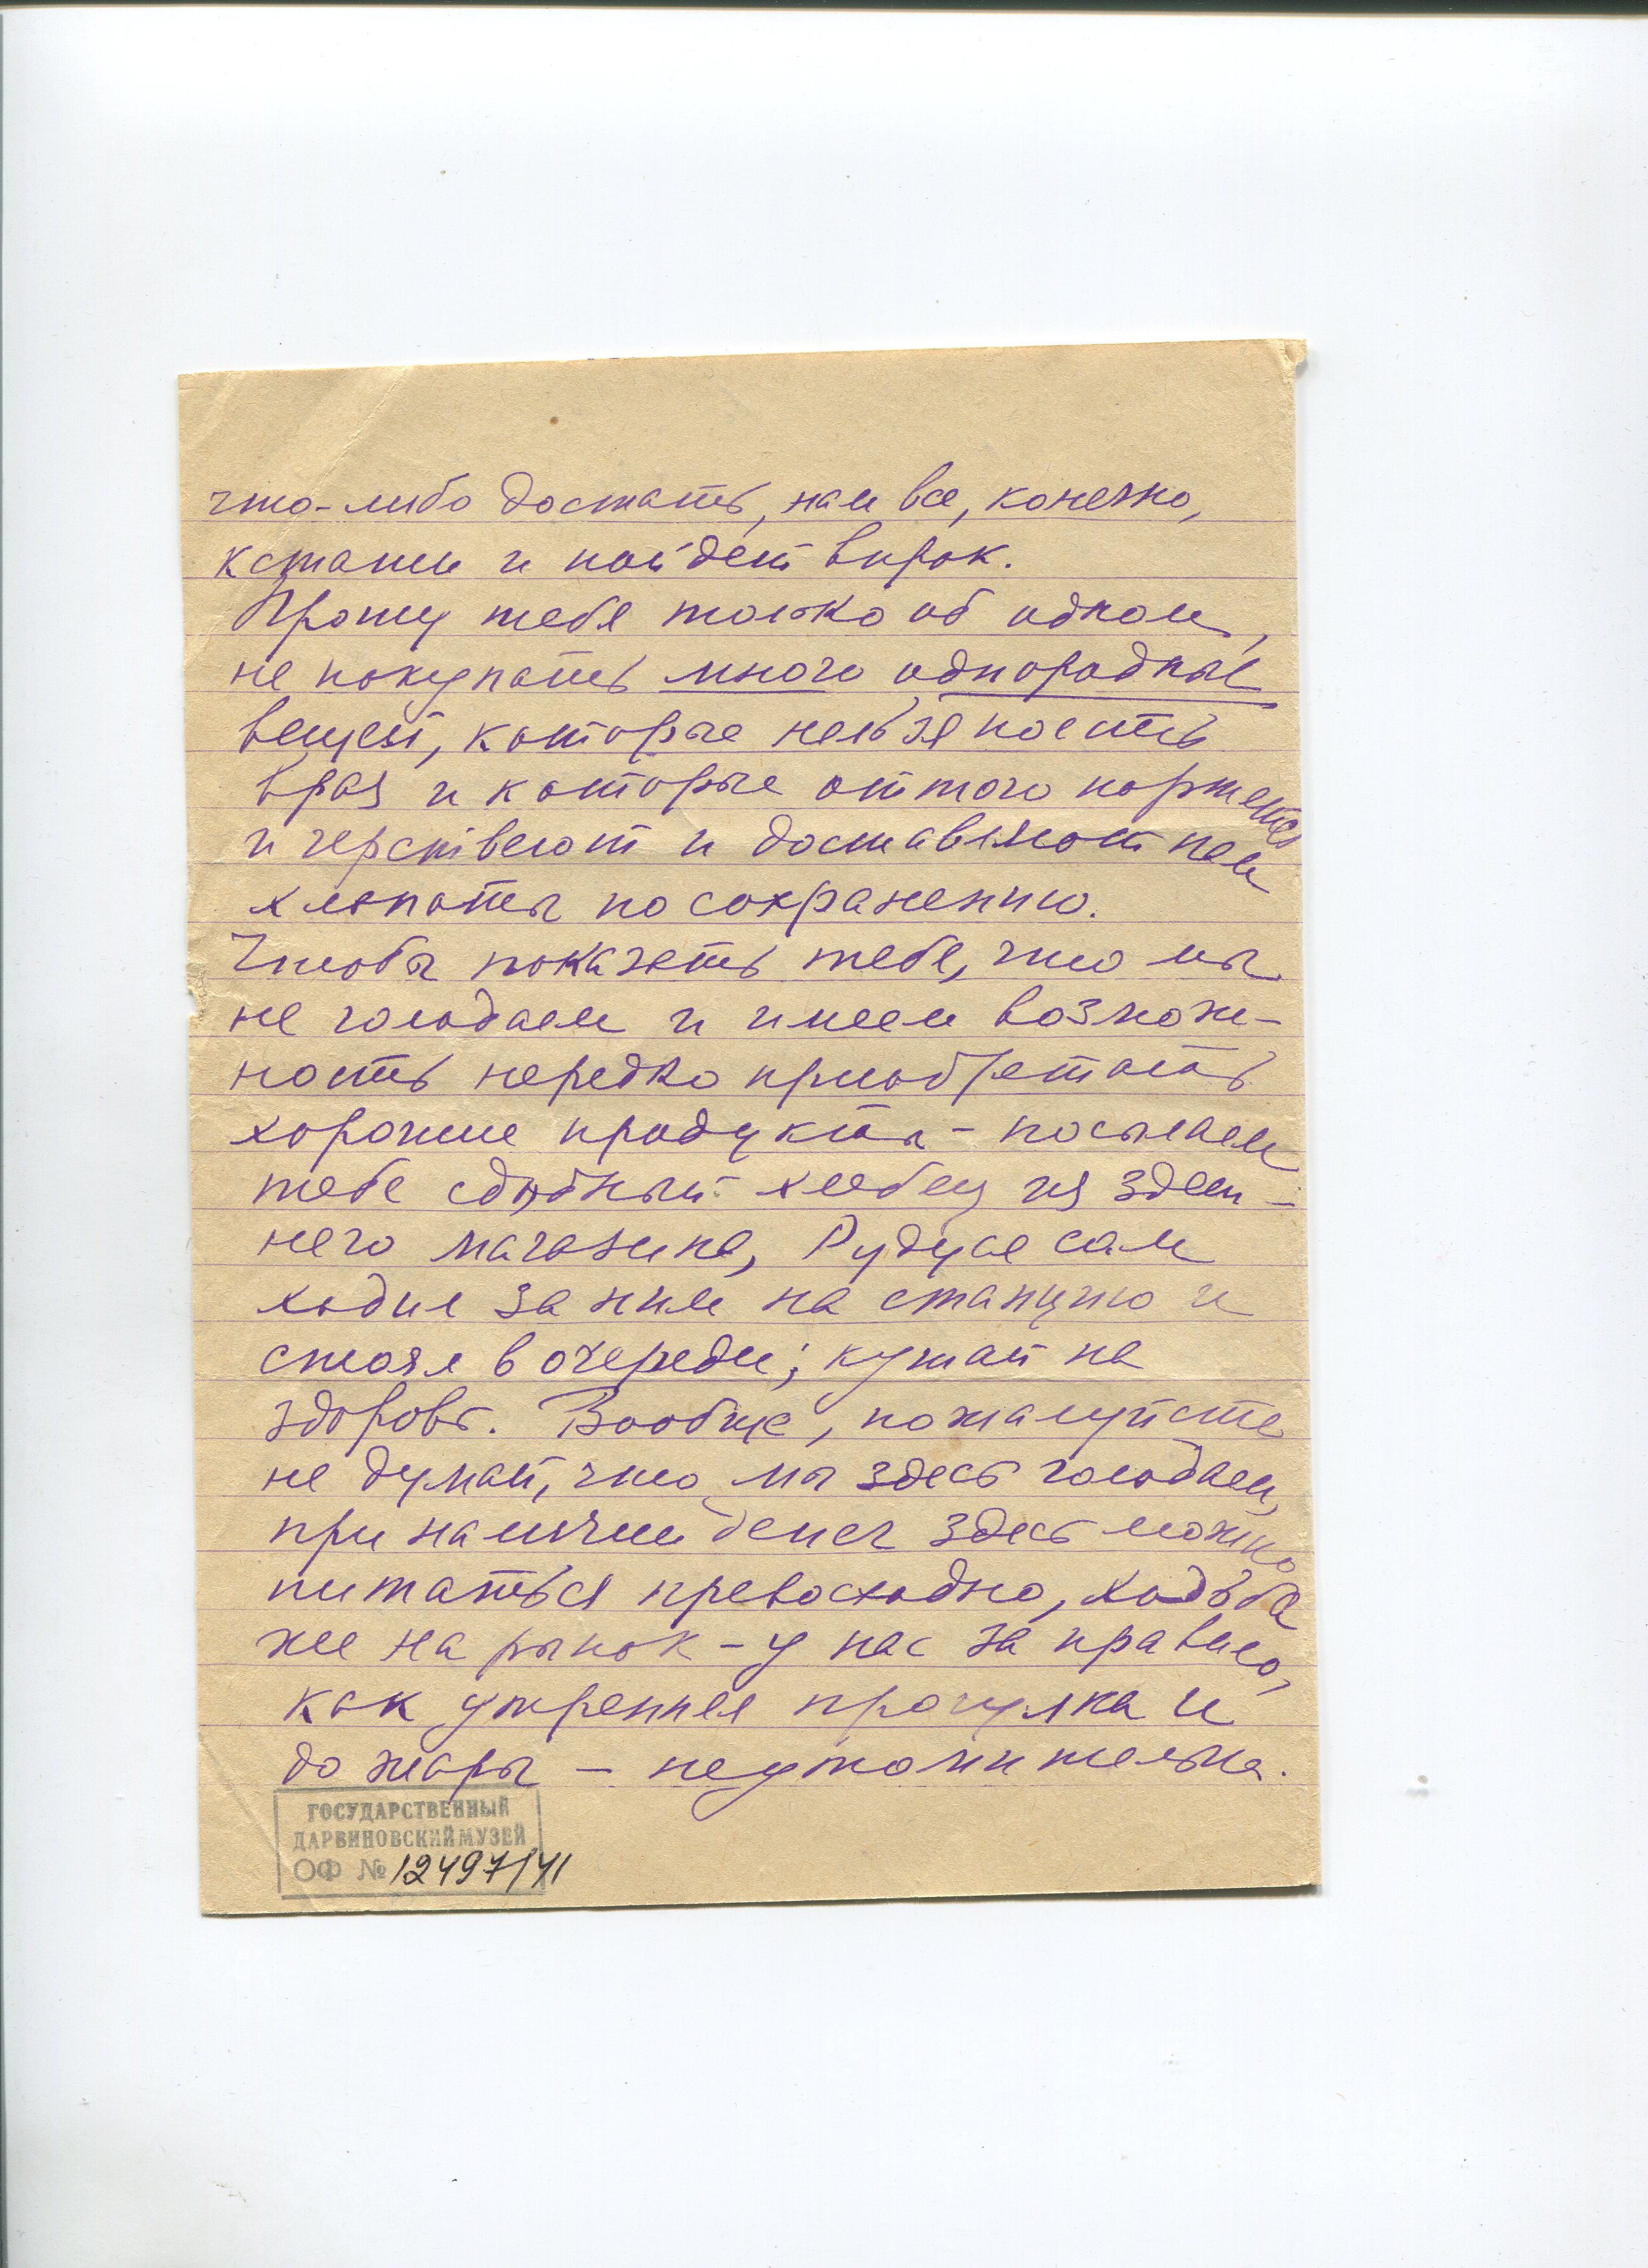 что-либо достать, нам все, конечно,
кстати и пойдет впрок.
Прошу тебя только об одном,
не покупать много однородные
вещей, которые нельзя поесть
враз и которые оттого портятся
и черствеют и доставляют нам
хлопоты по сохранению.
Чтобы показать тебе, что мы
не голодаем и имеем возмож-
ность нередко приобретать
хорошие продукты – посылаем
тебе сдобный хлебец из здеш-
него магазина, Рудуся сам
ходил за ним на станцию и
стоял в очереди; кушай на
здоровь. Вообще, пожалуйста
не думай, что мы здесь голодаем,
при наличии денег здесь можно
питаться превосходно, ходьба
же на рынок – у нас за правило,
как утренняя прогулка и
до жары – неутомительна.
ГОСУДАРСТВЕННЫЙ
ДАРВИНОВСКИЙ МУЗЕЙ
ОФ № 12497/41